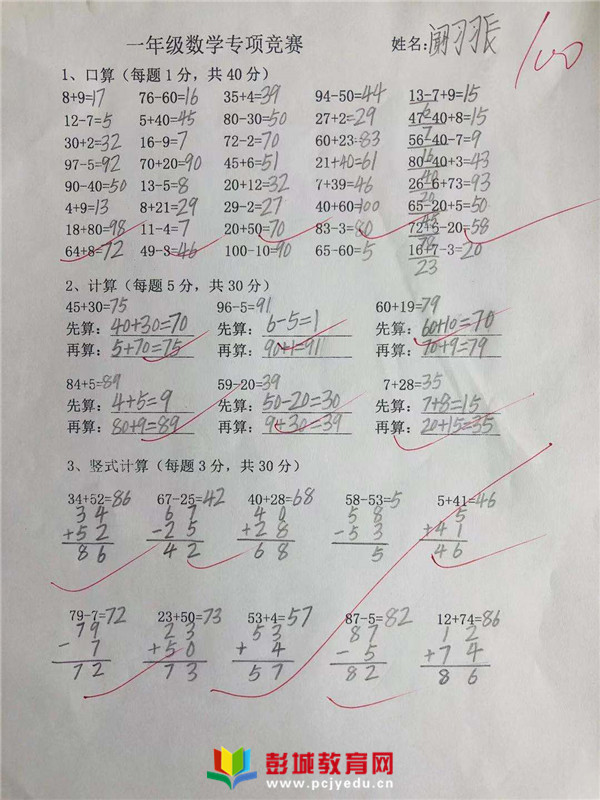 一年级数学专项竞赛 姓名: 100
1、口算（每题1分，共40分）
8+9=17 76-60=16 35+4=39 94-50=44 13-7+9=15
6
12-7=5 5+40=45 80-30=50 27+2=29 47-40+8=15
7
30+2=32 16-9=7 72-2=70 60+23=83 56-40-7=9
16
97-5=92 70+20=90 45+6=51 21+40=61 80-40+3=43
40
90-40=50 13-5=8 20+12=32 7+39=46 26-6+73=93
20
4+9=13 8+21=29 29-2=27 40+60=100 65-20+5=50
45
18+80=98 11-4=7 20+50=70 83-3=80 72+6-20=58
78
64+8=72 49-3=46 100-10=90 65-60=5 16+7-3=20
23
2、计算（每题5分，共30分）
45+30=75 96-5=91 60+19=79
先算：40+30=70 先算：6-5=1 先算：60+10=70
再算：5+70=75 再算：90+1=91 再算：70+9=79
84+5=89 59-20=39 7+28=35
先算：4+5=9 先算：50-20=30 先算：7+8=15
再算：80+9=89 再算：9+30=39 再算：20+15=35
3、竖式计算（每题3分，共30分）
34+52=86 67-25=42 40+28=68 58-53=5 5+41=46
34 67 40 58 5
+52 -25 +28 -53 +41
86 42 68 5 46
79-7=72 23+50=73 53+4=57 87-5=82 12+74=86
79 23 53 87 12
-7 +50 +4 -5 +74
72 73 57 82 86
彭城教育网
www.pcjyedu.cn